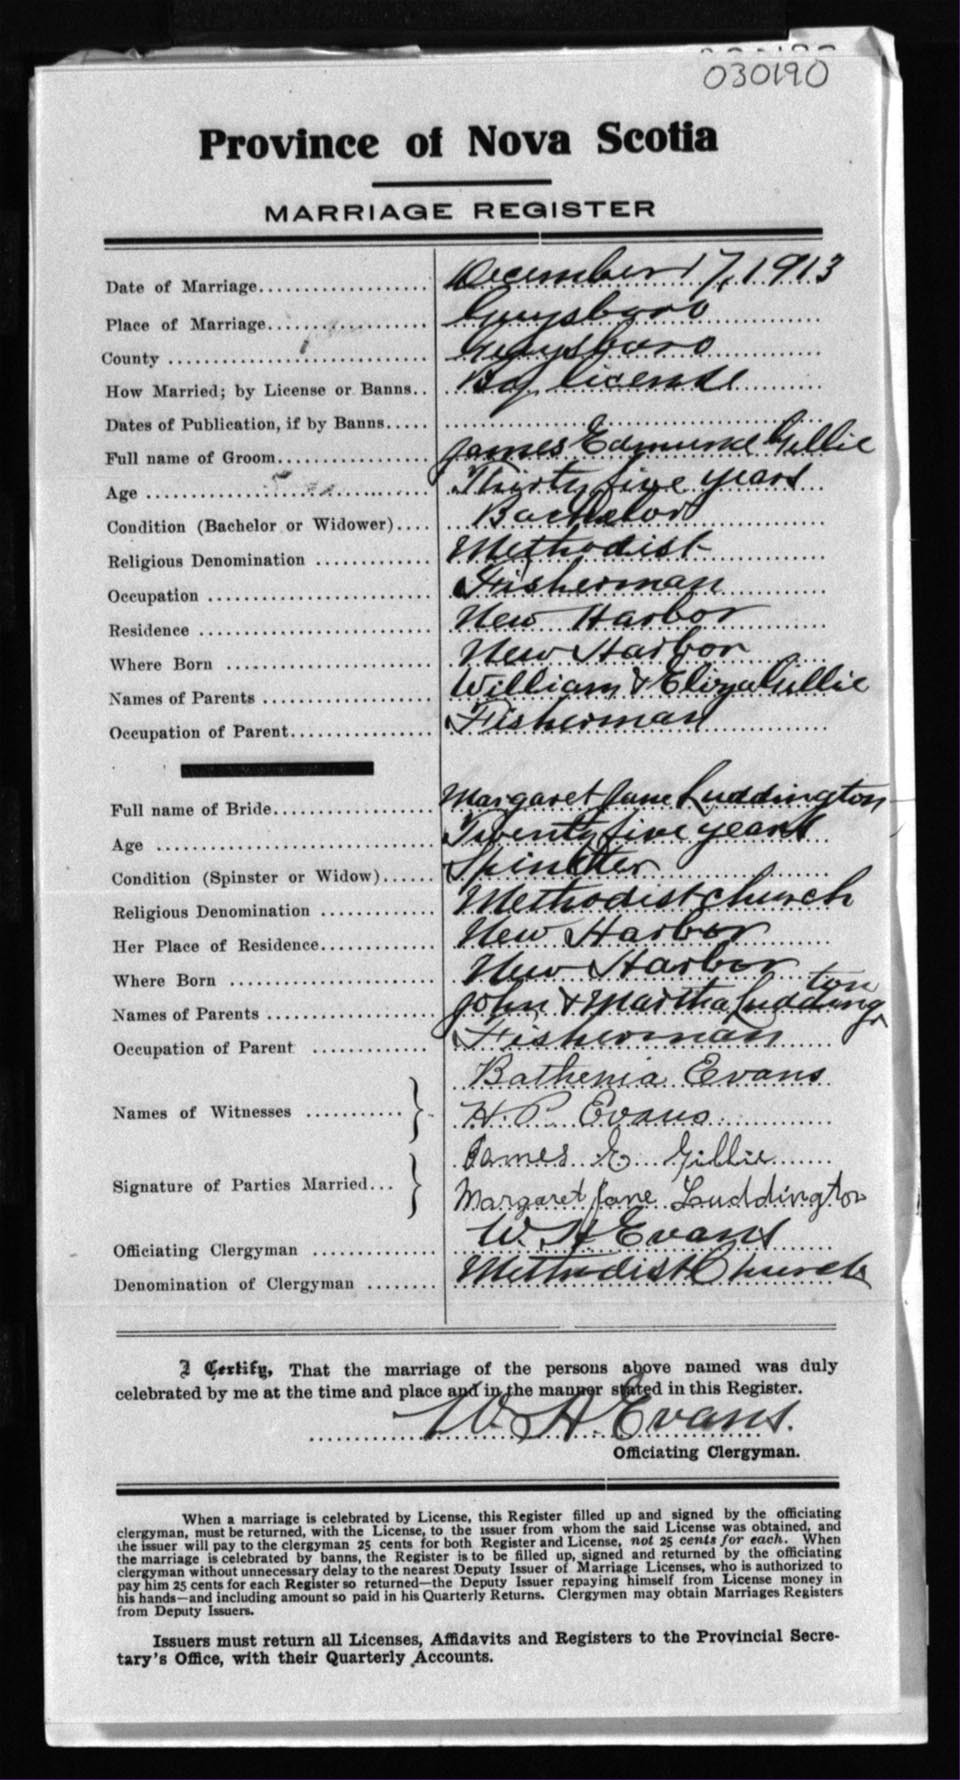 030190
Province of Nova Scotia
MARRIAGE REGISTER
Date of Marriage.................... December 17, 1913
Place of Marriage.................... Guysboro
County .............................. Guysboro
How Married; by License or Banns.. By license
Dates of Publication, if by Banns.....
Full name of Groom.................. James Edmund Gillie
Age ................................. Thirty five years
Condition (Bachelor or Widower).... Bachelor
Religious Denomination ............. Methodist
Occupation .......................... Fisherman
Residence ........................... New Harbor
Where Born ........................ New Harbor
Names of Parents ................... William & Eliza Gillie
Occupation of Parent................. Fisherman
Full name of Bride................... Margaret Jane Luddington
Age ................................. Twenty five years
Condition (Spinster or Widow)...... Spinster
Religious Denomination ............. Methodist church
Her Place of Residence.............. New Harbor
Where Born ........................ New Harbor
Names of Parents ................... John & Martha Luddington
Occupation of Parent ............... Fisherman
Bathenia Evans
Names of Witnesses ........... H. P. Evans
James E Gillie
Signature of Parties Married...
Margaret Jane Luddington
Officiating Clergyman ............... W. H Evans
Denomination of Clergyman ........ Methodist Church
I Certify, That the marriage of the persons above named was duly
celebrated by me at the time and place and in the manner stated in this Register.
W. H. Evans.
Officiating Clergyman.
When a marriage is celebrated by License, this Register filled up and signed by the officiating
clergyman, must be returned, with the License, to the issuer from whom the said License was obtained, and
the issuer will pay to the clergyman 25 cents for both Register and License, not 25 cents for each. When
the marriage is celebrated by banns, the Register is to be filled up, signed and returned by the officiating
clergyman without unnecessary delay to the nearest Deputy Issuer of Marriage Licenses, who is authorized to
pay him 25 cents for each Register so returned—the Deputy Issuer repaying himself from License money in
his hands—and including amount so paid in his Quarterly Returns. Clergymen may obtain Marriages Registers
from Deputy Issuers.
Issuers must return all Licenses, Affidavits and Registers to the Provincial Secre-
tary's Office, with their Quarterly Accounts.